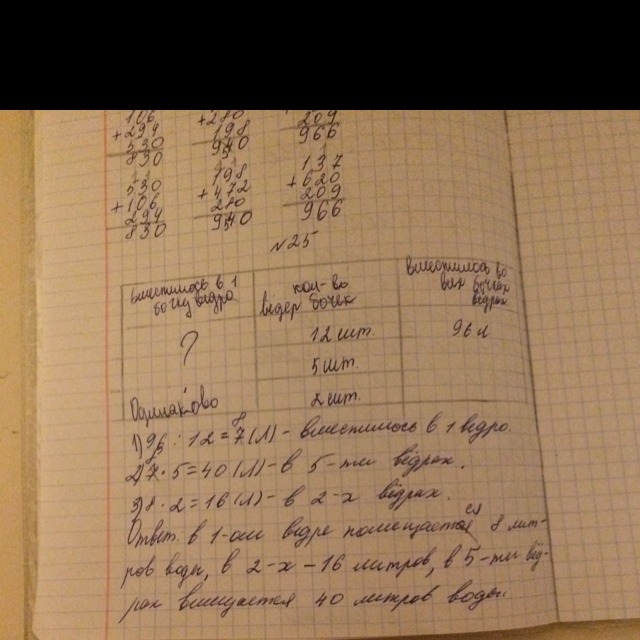 106 +210 209
+294 198 966
530 940
830
530 198 137
+106 +472 +620
294 270 209
830 940 966
№25
вместилось в 1 бочку ведро
кол-во ведер бочек
вместилось во всех бочках ведрах
? 12 шт. 96 л
5 шт.
Одинаково 2 шт.
1) 96 : 12 = 8 (л) - вместилось в 1 ведро.
2) 8 · 5 = 40 (л) - в 5-ти відрах.
3) 8 · 2 = 16 (л) - в 2-х відрах.
Ответ: в 1-ом ведре помещается 8 лит-
ров воды, в 2-х - 16 литров, в 5-ти вёд-
рах вмещается 40 литров воды.